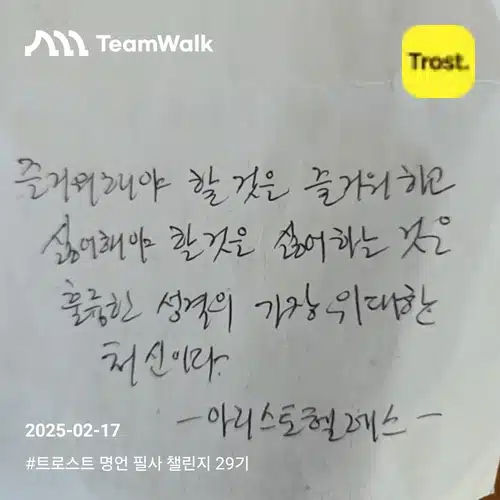 TeamWalk
Trost.
즐거워해야 할 것은 즐거워하고
싫어해야 할것은 싫어하는 것은
훌륭한 성격의 가장 위대한
처신이다.
-아리스토텔레스-
2025-02-17
#트로스트 명언 필사 챌린지 29기